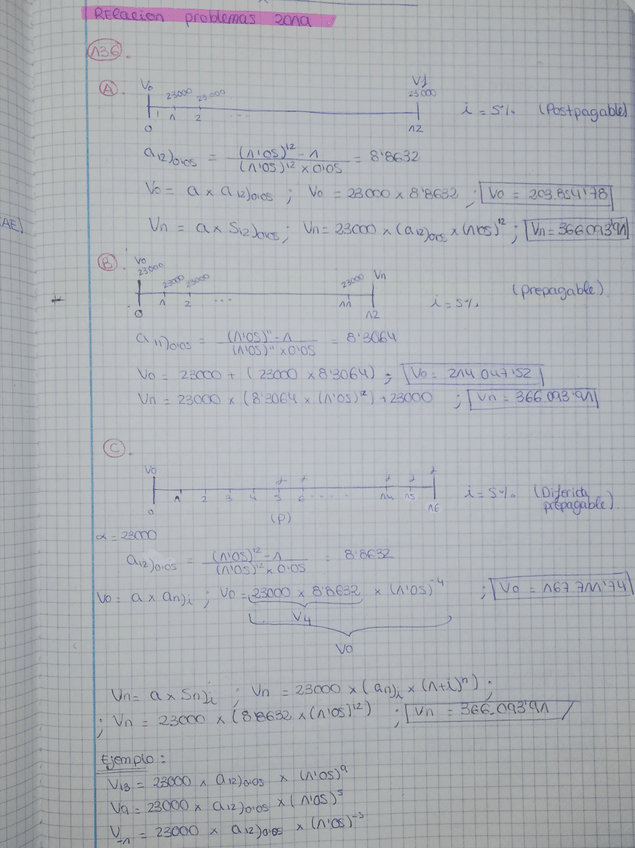 Relacion problemas zona
136.
A.
V₀ 23000 23000 ... 23000 Vf
0 1 2 12
i = 5% (Postpagable)
a12)0'05 = ((1'05)^12 - 1) / ((1'05)^12 x 0'05) = 8'8632
V₀ = a x a12)0'05 ; V₀ = 23000 x 8'8632 ; V₀ = 203.854'78
(AE)
Vn = a x S12)0'05 ; Vn = 23000 x (a12)0'05 x (1'05)^12 ; Vn = 366.093'91
B.
V₀ 23000 23000 23000 ... 23000 Vn
0 1 2 11 12
i = 5% (prepagable)
a11)0'05 = ((1'05)^11 - 1) / ((1'05)^11 x 0'05) = 8'3064
V₀ = 23000 + (23000 x 8'3064) ; V₀ = 214.047'52
Vn = 23000 x (8'3064 x (1'05)^12) + 23000 ; Vn = 366.093'91
C.
V₀
0 1 2 3 4 5 6 ... 14 15 16
(p)
i = 5% (Diferida prepagable)
α = 23000
a12)0'05 = ((1'05)^12 - 1) / ((1'05)^12 x 0'05) = 8'8632
V₀ = a x an)i ; V₀ = 23000 x 8'8632 x (1'05)^-4 ; V₀ = 167.711'74
V4
V₀
Vn = a x Sn)i ; Vn = 23000 x (an)i x (1+i)^n) ;
; Vn = 23000 x (8'8632 x (1'05)^12) ; Vn = 366.093'91
Ejemplo :
V13 = 23000 x a12)0'05 x (1'05)^9
V9 = 23000 x a12)0'05 x (1'05)^5
V-1 = 23000 x a12)0'05 x (1'05)^-5